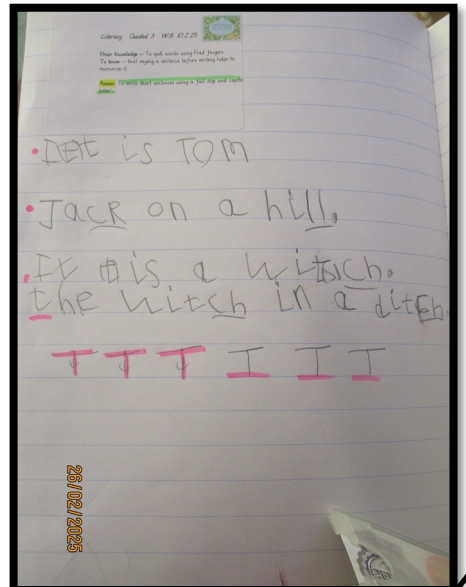 Literacy Guided 3 W.B. 10.2.25
Prior Knowledge – To spell words using fred fingers.
To know – that saying a sentence before writing helps to
memorise it.
Aspire: To write short sentences using a full stop and capital
letter.
It is TOM
Jack on a hill.
It is a witch.
the witch in a ditch.
T T T I I I
26/02/2025